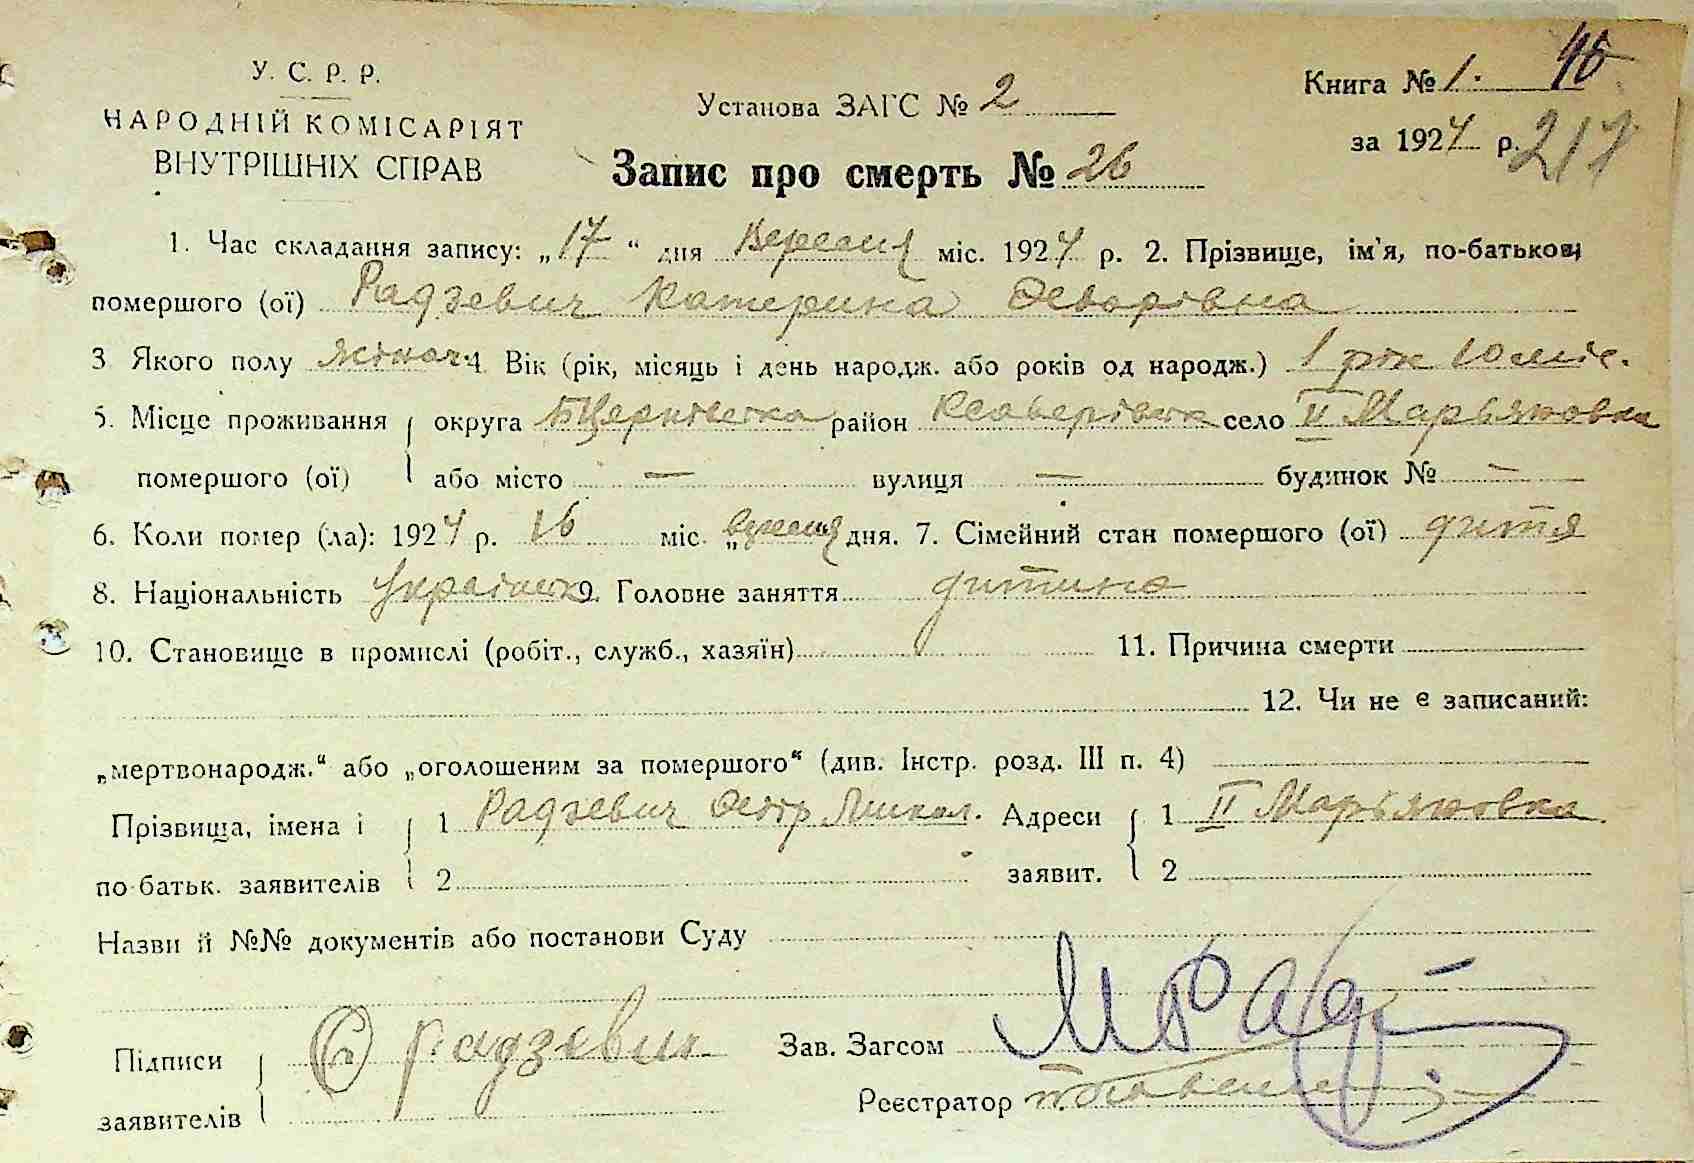 У. С. Р. Р.
НАРОДНІЙ КОМІСАРІЯТ
ВНУТРІШНІХ СПРАВ
Установа ЗАГС № 2
Книга № 1.
за 1924 р. 217
Запис про смерть № 26
1. Час складання запису: „17“ дня Вересня міс. 1924 р. 2. Прізвище, ім'я, по-батькові
помершого (ої) Радзевич Катерина Федорівна
3 Якого полу жіноч. 4 Вік (рік, місяць і день народж. або років од народж.) 1 рік 10 міс.
5. Місце проживання округа БЦерківська район село II Марьяновка
помершого (ої) або місто — вулиця — будинок № —
6. Коли помер (ла): 1924 р. 16 міс. „вересня дня. 7. Сімейний стан помершого (ої) дитя
8. Національність Українська 9. Головне заняття дитина
10. Становище в промислі (робіт., служб., хазяїн) 11. Причина смерти
12. Чи не є записаний:
„мертвонародж.“ або „оголошеним за помершого“ (див. Інстр. розд. III п. 4)
Прізвища, імена і 1 Радзевич Микол. Адреси 1 II Марьяновка
по-батьк. заявителів 2 заявит. 2
Назви й №№ документів або постанови Суду
Підписи Радзевич Зав. Загсом
заявителів Реєстратор